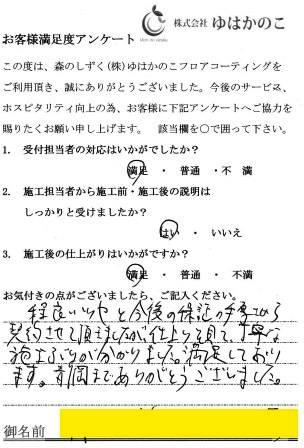 株式会社 ゆはかのこ
お客様満足度アンケート
この度は、森のしずく(株)ゆはかのこフロアコーティングを
ご利用頂き、誠にありがとうございました。今後のサービス、
ホスピタリティ向上の為、お客様に下記アンケートへご協力を
賜りたくお願い申し上げます。 該当欄を〇で囲って下さい。
1. 受付担当者の対応はいかがでしたか?
満足 ・ 普通 ・不 満
2. 施工担当者から施工前・施工後の説明は
しっかりと受けましたか?
はい ・ いいえ
3. 施工後の仕上がりはいかがですか?
満足 ・ 普通 ・ 不満
お気付きの点がございましたら、ご記入ください。
程良いツヤと今後の保証の手厚さから
契約させて頂きましたが仕上りを見て、丁寧な
施工ぶりが分かりました。満足しており
ます。ありがとうございました。
御名前